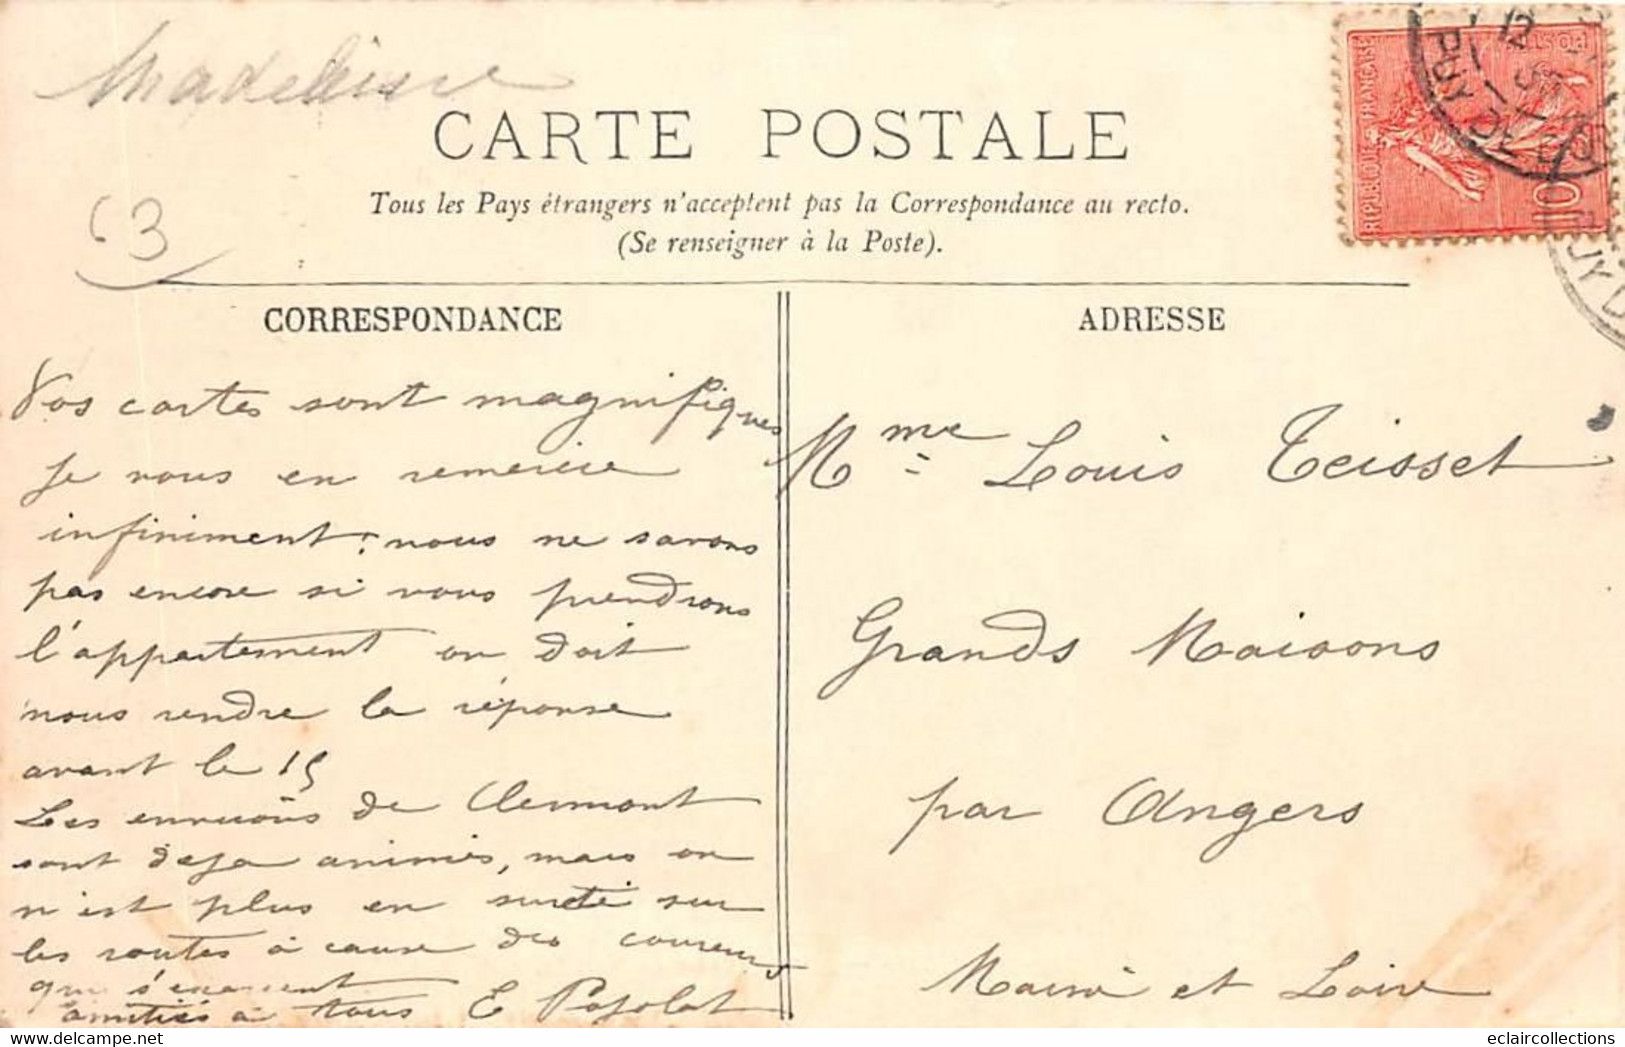 Madeleine
CARTE POSTALE
Tous les Pays étrangers n'acceptent pas la Correspondance au recto.
(Se renseigner à la Poste).
63
REPUBLIQUE FRANÇAISE
10
POSTES
PUY DE D
UY D
CORRESPONDANCE
Vos cartes sont magnifiques
je vous en remercie
infiniment; nous ne savons
pas encore si nous prendrons
l'appartement on doit
nous rendre la réponse
avant le 15
Les environs de Clermont
sont deja animés, mais on
n'est plus en sureté sur
les routes à cause des coureurs
qui s'exercent
amitiés à tous E
ADRESSE
Mme Louis Teisset
Grands Maisons
par Angers
Maine et Loire
eclaircollections